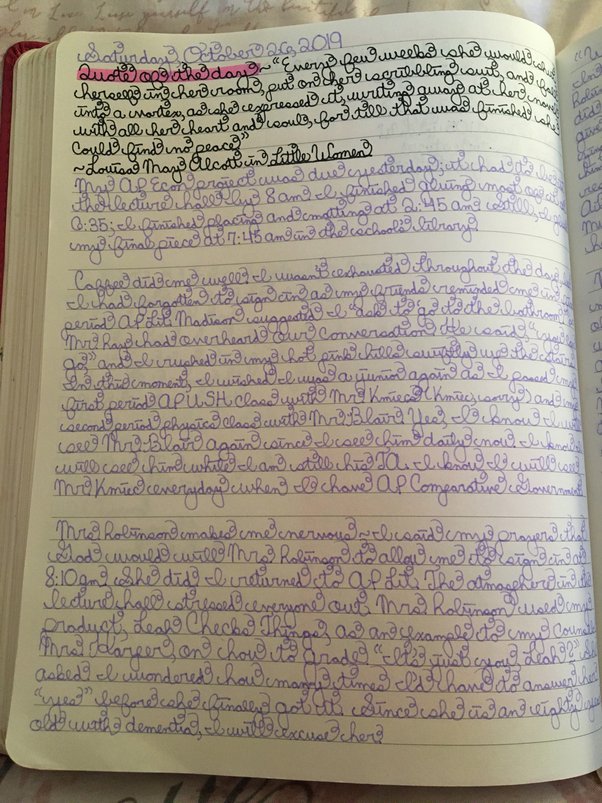 Saturday, October 26, 2019
Quote of the day ~ "Every few weeks she would shut
herself in her room, put on her scribbling suit, and fall
into a vortex, as she expressed it, writing away at her novel
with all her heart and soul, for till that was finished she
could find no peace"
~ Louisa May Alcott in Little Women
My AP Econ project was due yesterday; it had to be in
the lecture hall by 8 am. I finished gluing most of it at
6:35; I finished placing and matting at 2:45 am. Still, I glued
my final piece at 7:45 am in the school's library.
Coffee did me well. I wasn't exhausted throughout the day
I had forgotten to sign in as my friends reminded me in
period AP Lit. Madison suggested I ask to go to the bathroom
Mr. Kay had overheard our conversation. He said "you
go," and I rushed in my hot pink hills swiftly up the stairs.
In this moment, I wished I was a junior again as I passed my
first period APUSH class with Mr. Kmiecs (Kmiec, sorry) and my
second period physics class with Mr. Blair. Yes, I know I will
see Mr. Blair again since I see him daily now. I know I
will see him while I am still his TA. I know I will see
Mr. Kmiec everyday when I have AP Comparative Government.
Mrs. Robinson makes me nervous ~ I said my prayers that
God would will Mrs. Robinson to allow me to sign in at
8:10 am. She did. I returned to AP Lit. The atmosphere in the
lecture hall stressed everyone out. Mrs. Robinson used my
product, Leah Checks Things, as an example to my
Mrs. on how to grade. "It's just you, Leah?" she
asked. I wondered how many times I'd have to answer her
"yes" before she finally got it. Since she is an eighty year
old with dementia, I will excuse her.